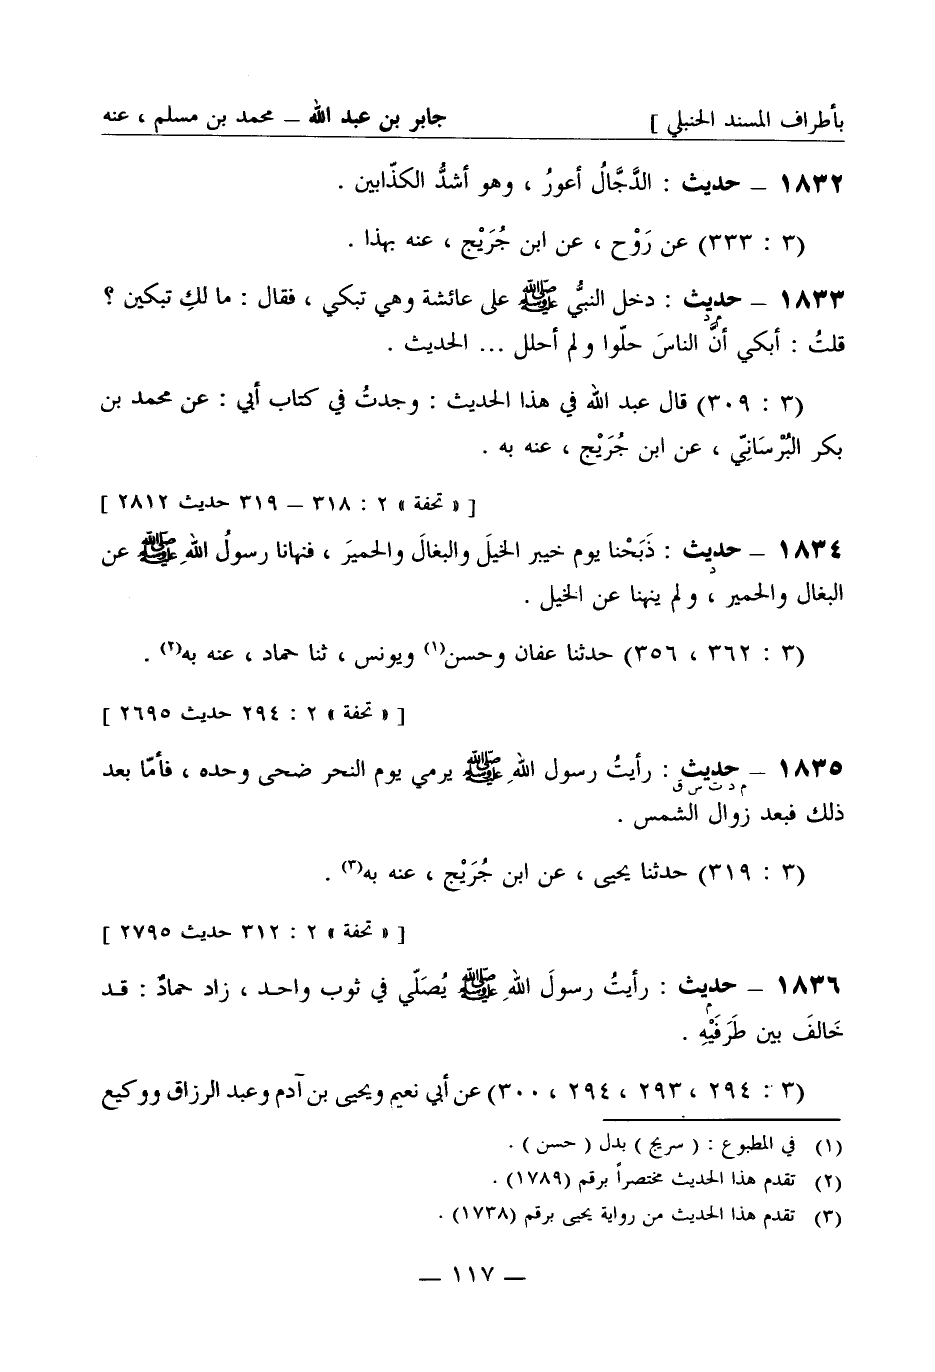 بأطراف المسند الحنبلي ] جابر بن عبد الله ـ محمد بن مسلم ، عنه
١٨٣٢ ـ حديث : الدَّجَّالُ أعورُ ، وهو أشدُّ الكذّابين .
(٣ : ٣٣٣) عن رَوْح ، عن ابن جُرَيْج ، عنه بهذا .
١٨٣٣ ـ حديث : دخل النبيُّ ﷺ على عائشة وهي تبكي ، فقال : ما لكِ تبكين ؟
م د
قلتُ : أبكي أنَّ الناسَ حلّوا ولم أحلل ... الحديث .
(٣ : ٣٠٩) قال عبد الله في هذا الحديث : وجدتُ في كتاب أبي : عن محمد بن
بكر البُرْسَانِيّ ، عن ابن جُرَيْج ، عنه به .
[ « تحفة » ٢ : ٣١٨ ـ ٣١٩ حديث ٢٨١٢ ]
١٨٣٤ ـ حديث : ذَبَحْنا يوم خيبر الخيلَ والبغالَ والحميرَ ، فنهانا رسولُ اللهِ ﷺ عن
د
البغال والحمير ، ولم ينهنا عن الخيل .
(٣ : ٣٦٢ ، ٣٥٦) حدثنا عفان وحسن(١) ويونس ، ثنا حماد ، عنه به(٢) .
[ « تحفة » ٢ : ٢٩٤ حديث ٢٦٩٥ ]
١٨٣٥ ـ حديث : رأيتُ رسول اللهِ ﷺ يرمي يوم النحر ضحى وحده ، فأمّا بعد
م د ت س ق
ذلك فبعد زوال الشمس .
(٣ : ٣١٩) حدثنا يحيى ، عن ابن جُرَيْج ، عنه به(٣) .
[ « تحفة » ٢ : ٣١٢ حديث ٢٧٩٥ ]
١٨٣٦ ـ حديث : رأيتُ رسولَ اللهِ ﷺ يُصَلّي في ثوب واحد ، زاد حمادٌ : قد
م
خَالفَ بين طَرَفَيْهِ .
(٣ : ٢٩٤ ، ٢٩٣ ، ٢٩٤ ، ٣٠٠) عن أبي نعيم ويحيى بن آدم وعبد الرزاق ووكيع
(١) في المطبوع : ( سريج ) بدل ( حسن ) .
(٢) تقدم هذا الحديث مختصراً برقم (١٧٨٩) .
(٣) تقدم هذا الحديث من رواية يحيى برقم (١٧٣٨) .
ـ ١١٧ ـ